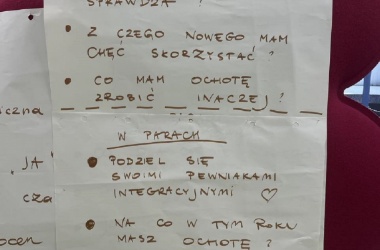 SPRAWDZA ?
• Z CZEGO NOWEGO MAM
CHĘĆ SKORZYSTAĆ ?
• CO MAM OCHOTĘ
ZROBIĆ INACZEJ ?
W PARACH
• PODZIEL SIĘ
SWOIMI PEWNIAKAMI
INTEGRACYJNYMI ♡
• NA CO W TYM ROKU
MASZ OCHOTĘ ?
iczna
"JA
cza
ocen